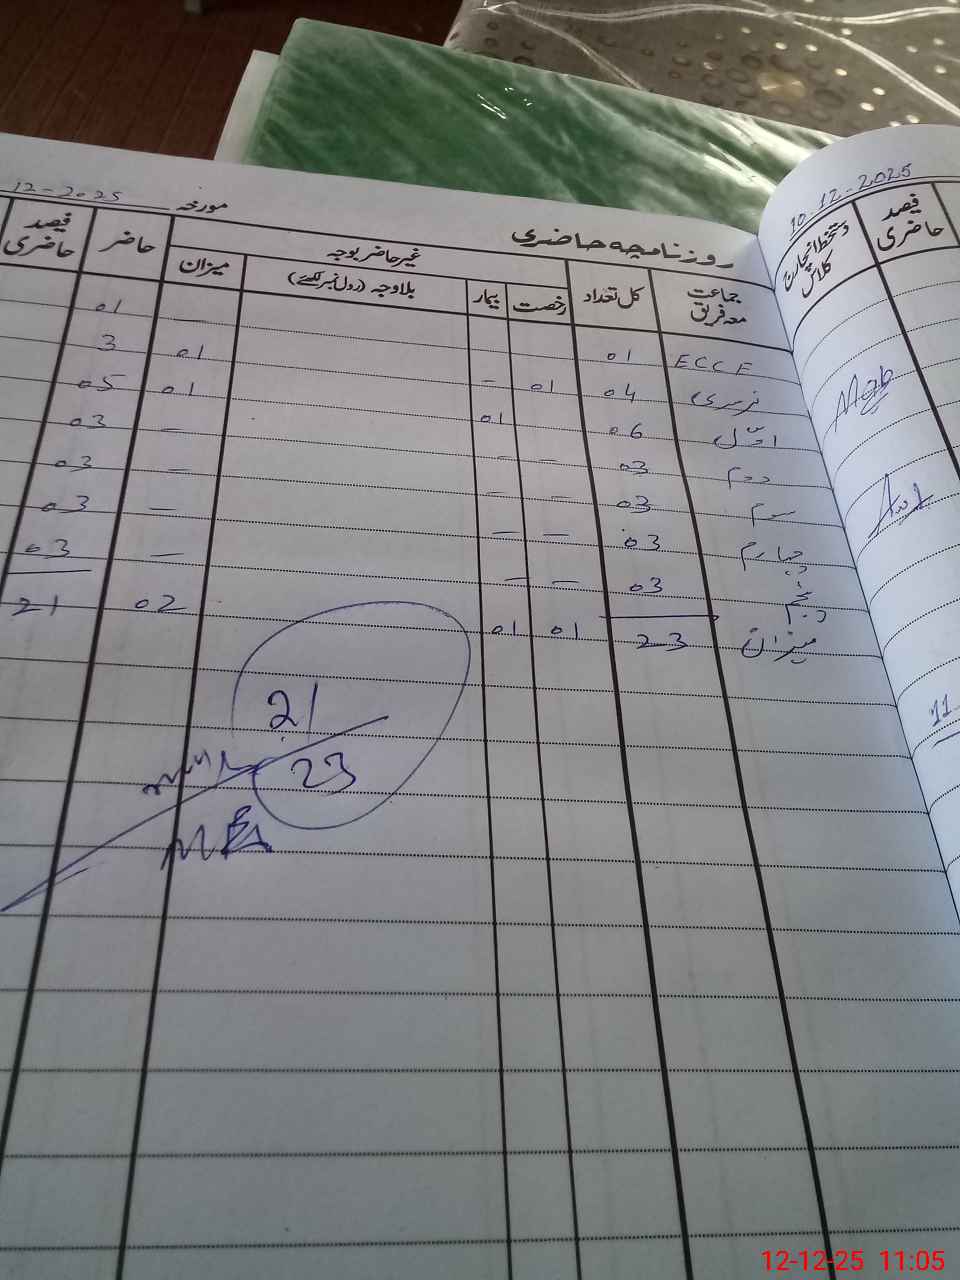 10-12-2025
فیصد حاضری
دستخط انچارج کلاس
11
روزنامچہ حاضری
مورخہ 12-2025
جماعت معہ فریق
کل تعداد
غیر حاضر بوجہ
رخصت
بیمار
بلاوجہ (رول نمبر لکھئے)
میزان
حاضر
فیصد حاضری
ECCE 01 — 01
نرسری 04 01 – 01 3
اوّل 06 01 01 05
دوم 03 – – – 03
سوم 03 – – – 03
چہارم 03 – – – 03
پنجم 03 – – – 03
میزان 23 01 01 02 21
21
23
12-12-25 11:05